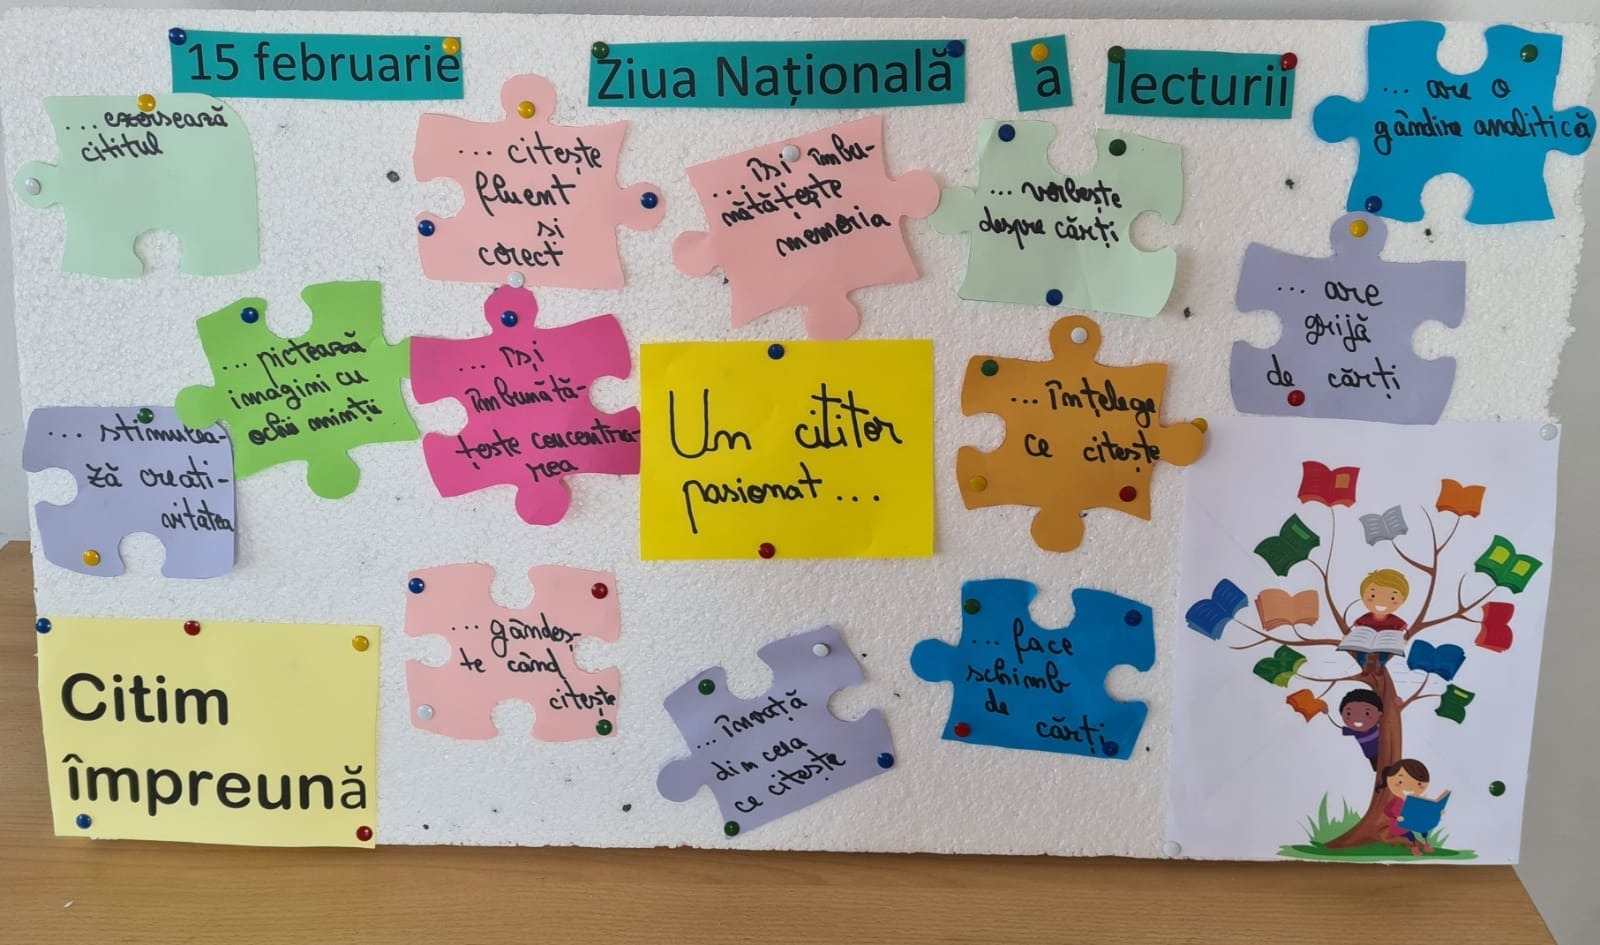 15 februarie Ziua Națională a lecturii
...exersează
cititul
... citește
fluent
și
corect
... își îmbu-
nătățește
memoria
... vorbește
despre cărți
... are o
gândire analitică
... are
grijă
de cărți
... pictează
imagini cu
ochii minții
... își
îmbunătă-
țește concentra-
rea
Un cititor
pasionat...
... înțelege
ce citește
... stimulea-
ză creati-
vitatea
... gândeș-
te când
citește
... învață
din ceea
ce citește
... face
schimb
de
cărți
Citim
împreună